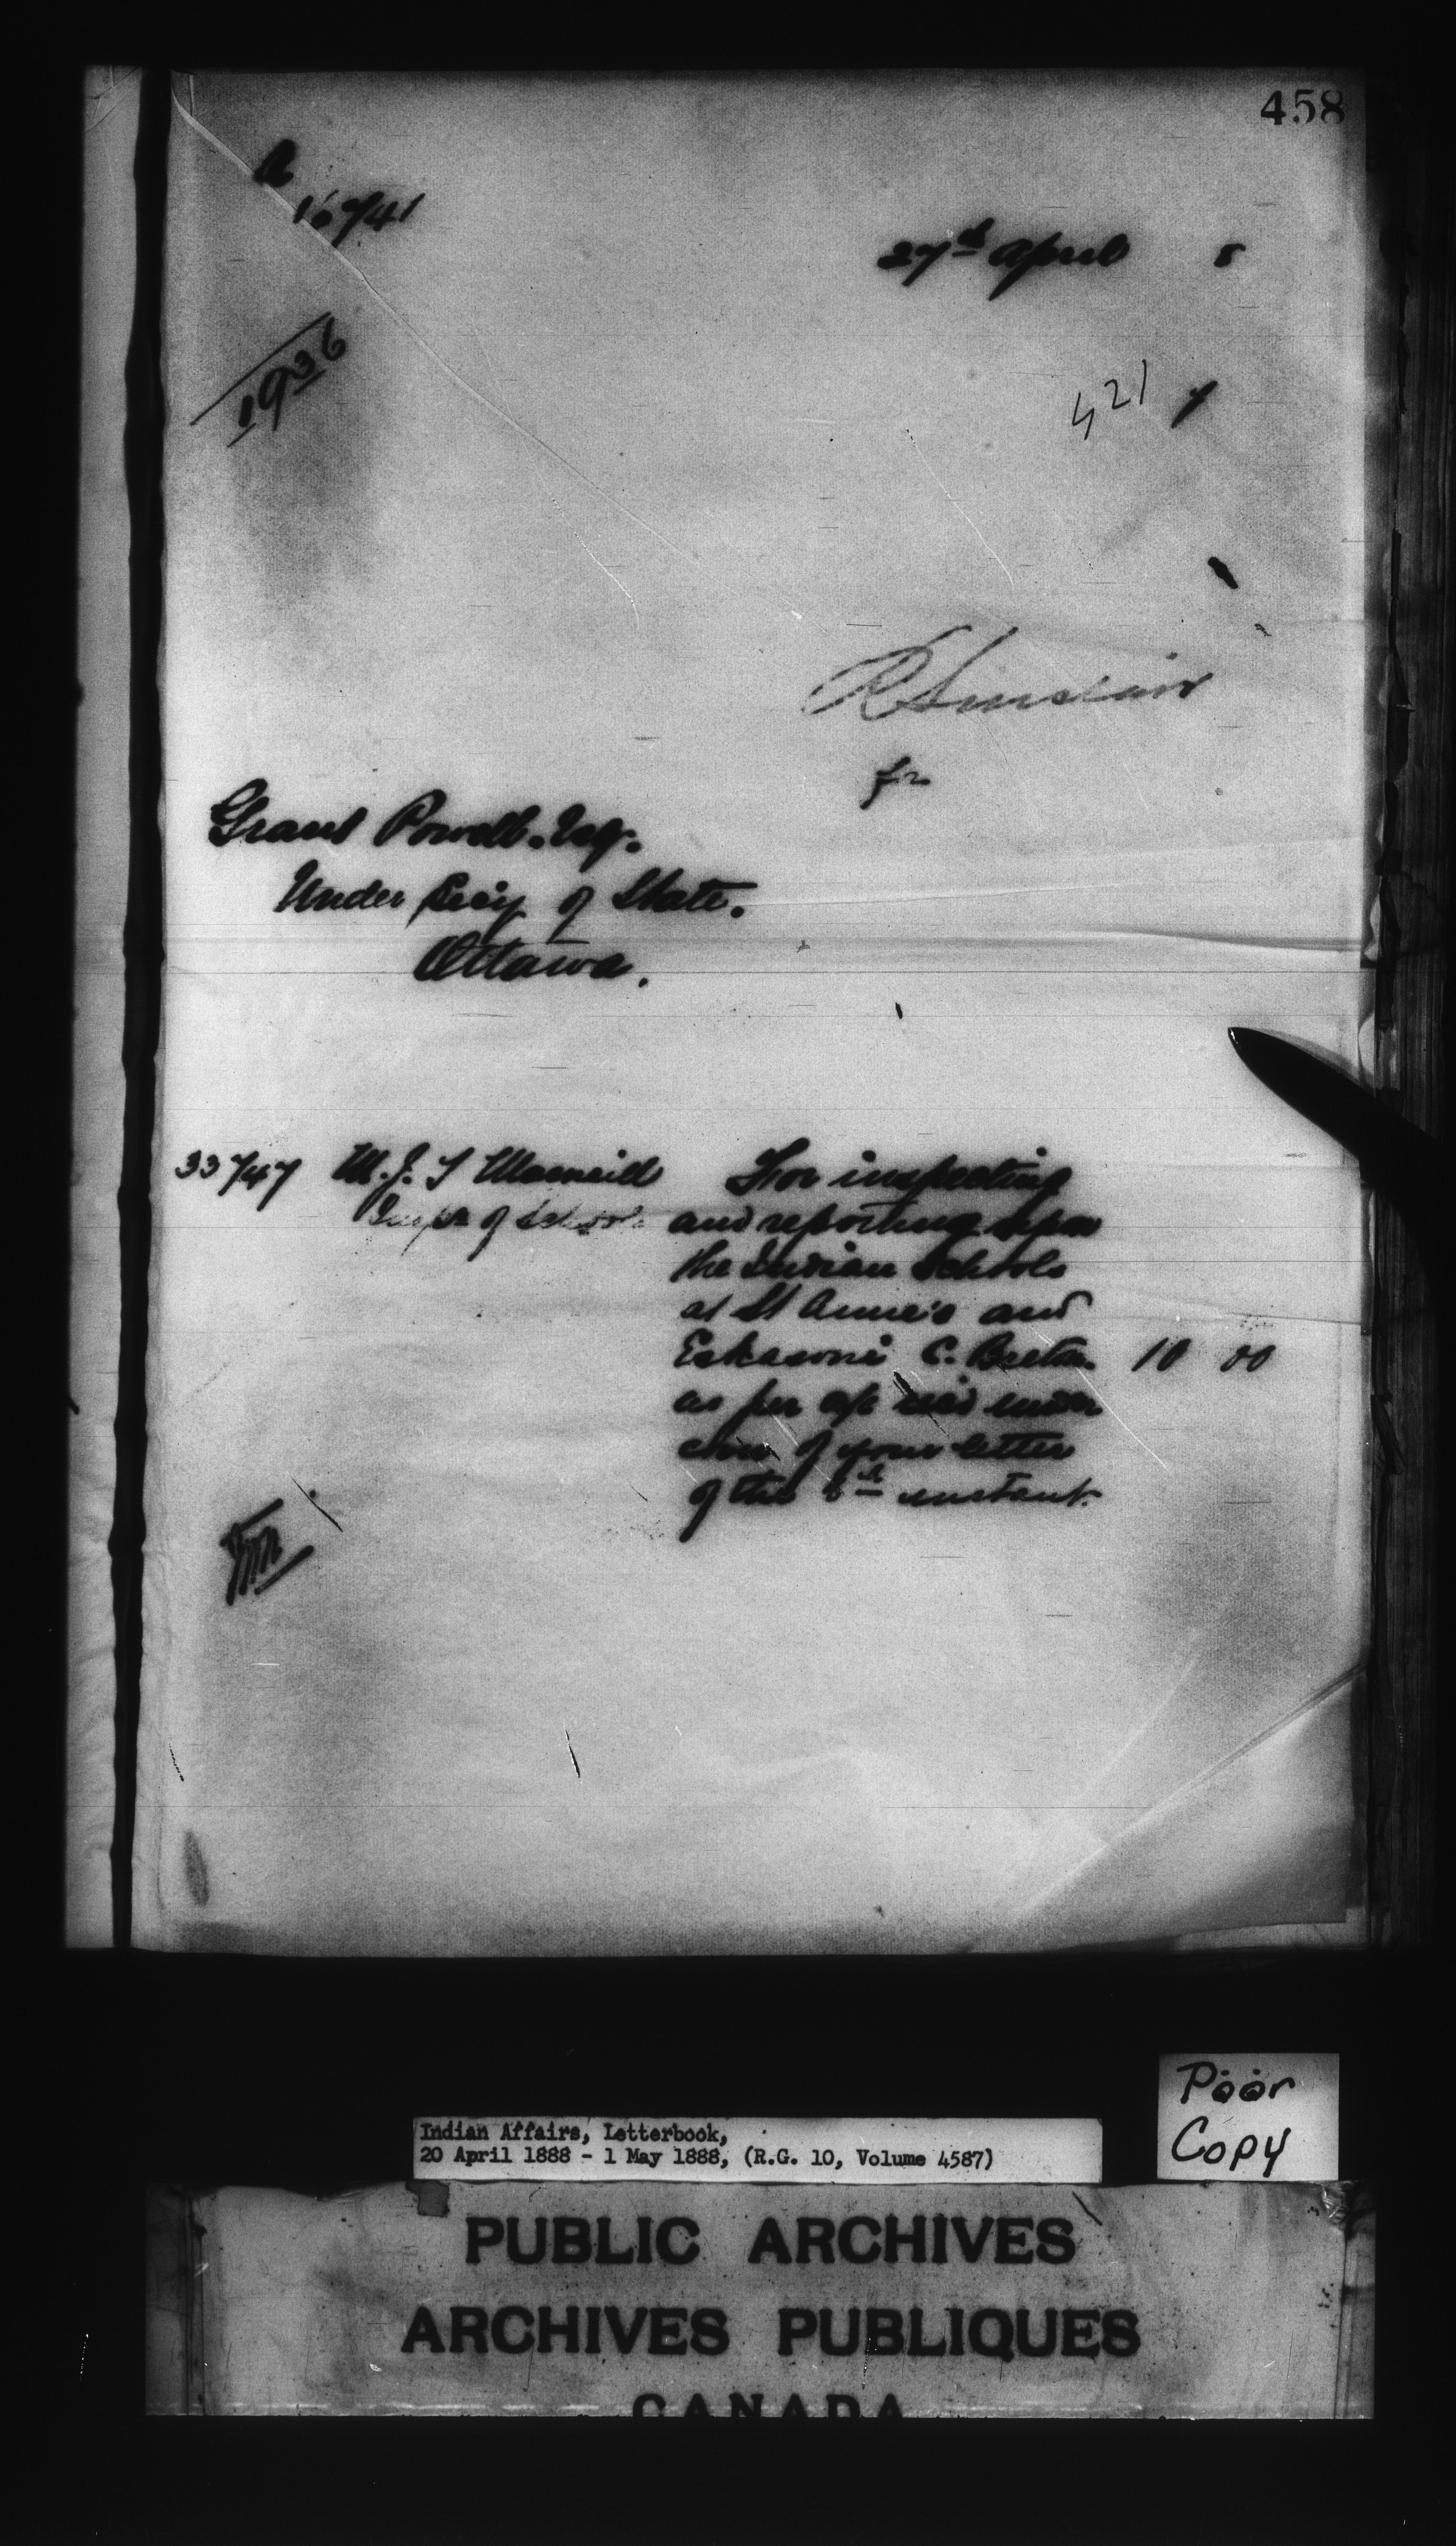 458
27th April 8
1936
421 7
R Sinclair
for
Grant Powell. Esq.
Under Secy of State.
Ottawa.
33747 M. J. T Macneill For inspecting
Inspr of Schools and reporting upon
the Indian Schools
at St Anne's and
Eskasoni C. Breton. 10 00
as per a/c recd under
cover of your letter
of the 6th instant.
Indian Affairs, Letterbook,
20 April 1888 - 1 May 1888, (R.G. 10, Volume 4587)
Poor
Copy
PUBLIC ARCHIVES
ARCHIVES PUBLIQUES
CANADA